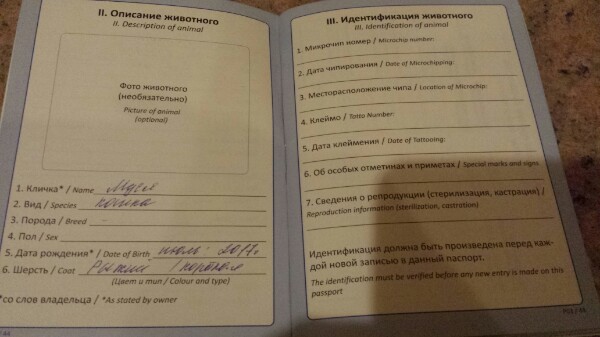 II. Описание животного
II. Description of animal
Фото животного
(необязательно)
Picture of animal
(optional)
1. Кличка* / Name
2. Вид / Species кошка
3. Порода / Breed -
4. Пол / Sex
5. Дата рождения* / Date of Birth июль 2017г
6. Шерсть / Coat Рыжий / короткая
(Цвет и тип / Colour and type)
*со слов владельца / *As stated by owner
III. Идентификация животного
III. Identification of animal
1. Микрочип номер / Microchip number:
2. Дата чипирования / Date of Microchipping:
3. Месторасположение чипа / Location of Microchip:
4. Клеймо / Tatto Number:
5. Дата клеймения / Date of Tattooing:
6. Об особых отметинах и приметах / Special marks and signs
7. Сведения о репродукции (стерилизация, кастрация) /
Reproduction information (sterilization, castration)
Идентификация должна быть произведена перед каж-
дой новой записью в данный паспорт.
The identification must be verified before any new entry is made on this
passport